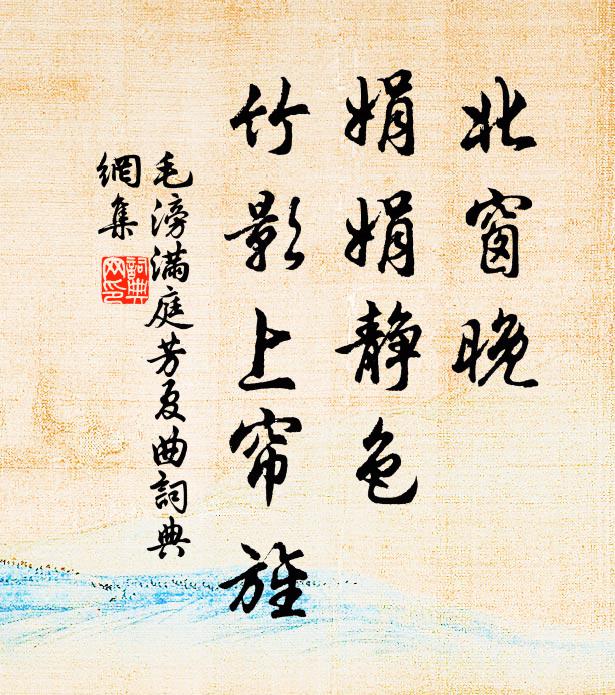 北窗晚
娟娟静色
竹影上帘旌
毛滂满庭芳夏曲詞典
網集
詞典
网印